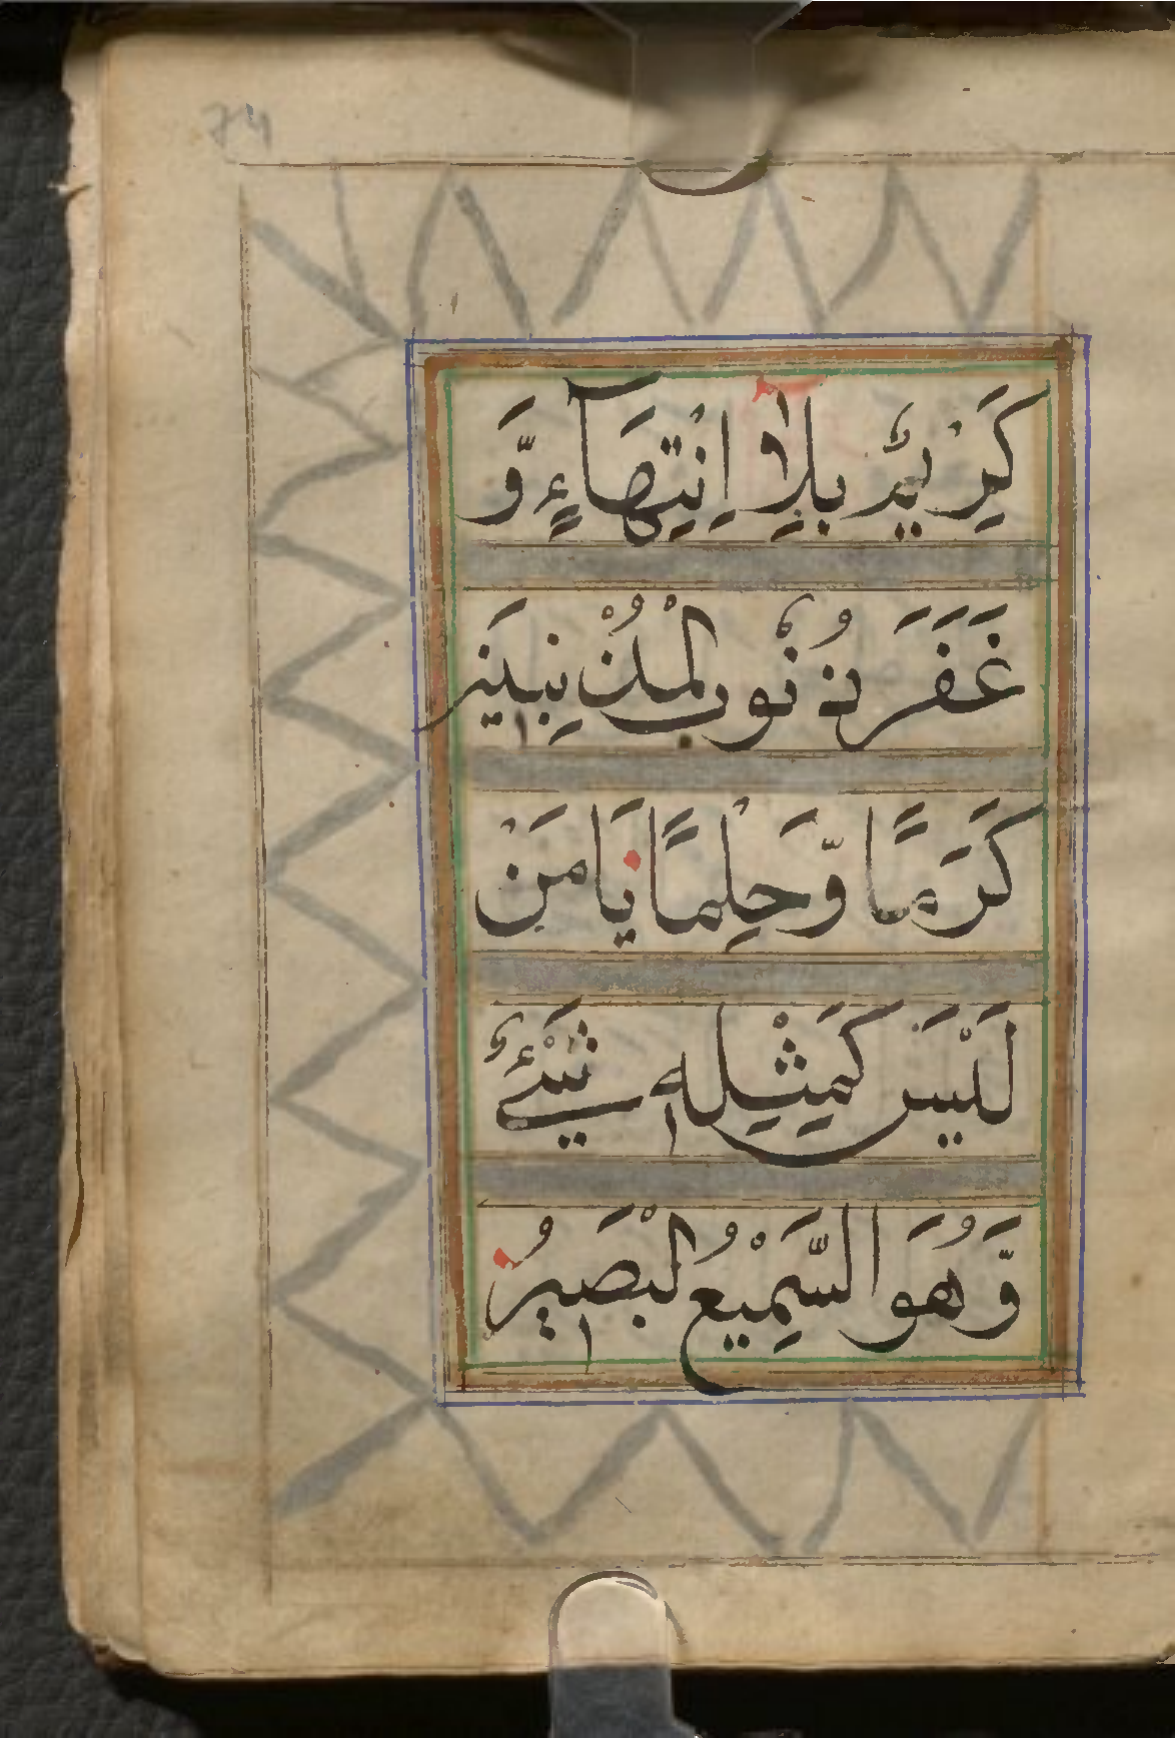 74
كَرِيْمٌ بِلَا اِنْتِهَآءٍ وَّ
غَفَرَ ذُنُوْبَ الْمُذْنِبِيْنَ
كَرَمًا وَّحِلْمًا يَا مَنْ
لَيْسَ كَمِثْلِهٖ شَيْءٌ
وَّهُوَ السَّمِيْعُ الْبَصِيْرُ